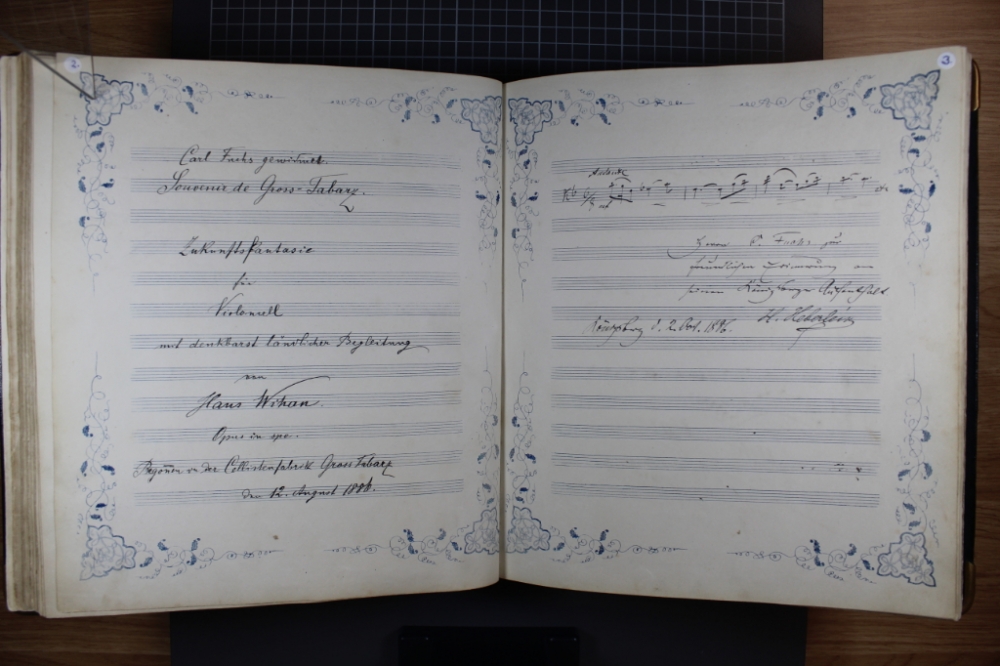 2.
Carl Fuchs gewidmet.
Souvenir de Gross-Tabarz.
Zukunftsfantasie
für
Violoncell
mit denkbarst ländlicher Begleitung
von
Hans Wihan.
Opus in spe.
Begonnen in der Cellistenfabrik Gross Tabarz
den 12. August 1886.
3.
etc.
Herrn C. Fuchs zur
freundlichen Erinnerung an
seinen Königsberger Aufenthalt
Königsberg d. 2. Oct. 1886.